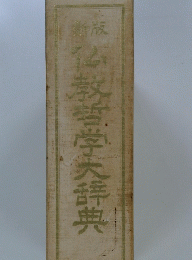 版
仏教哲学大辞典